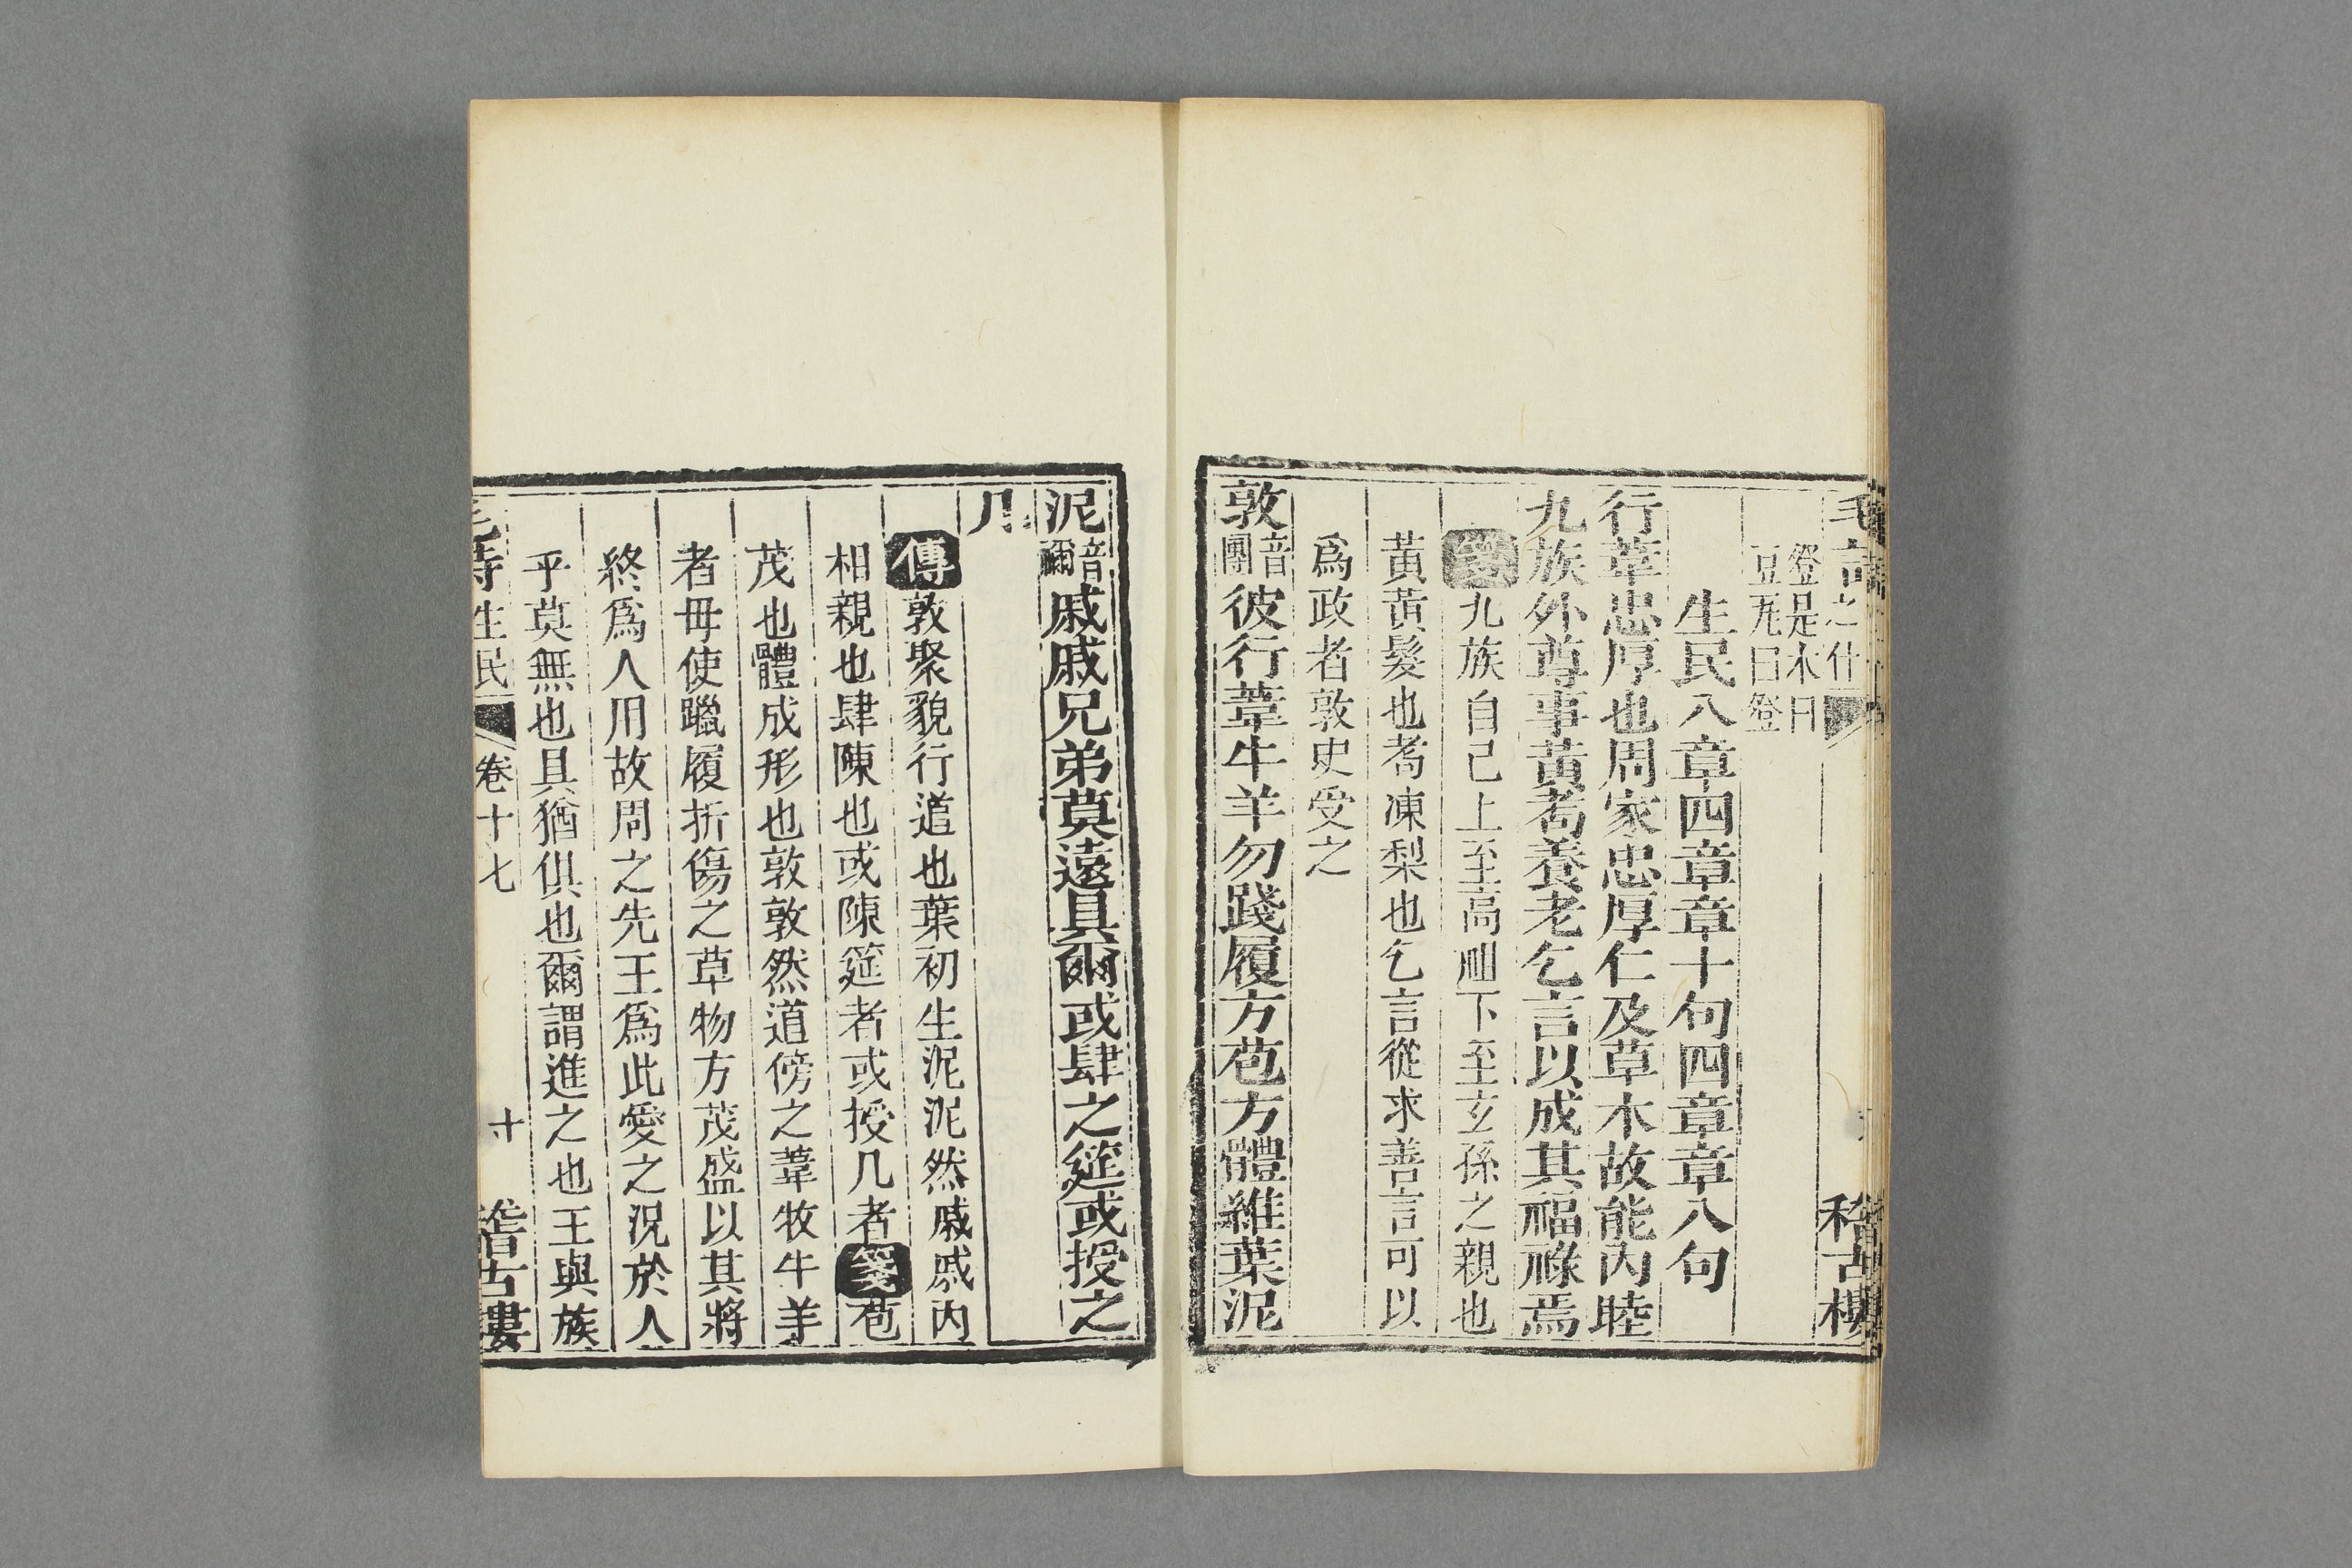 登是木曰
豆瓦曰登
生民八章四章章十句四章章八句
行葦忠厚也周家忠厚仁及草木故能內睦
九族外尊事黃耇養老乞言以成其福祿焉
箋九族自己上至高祖下至玄孫之親也
黃黃髮也耇凍梨也乞言從求善言可以
爲政者敦史受之
敦音團彼行葦牛羊勿踐履方苞方體維葉泥
泥音爾戚戚兄弟莫遠具爾或肆之筵或授之
几
傳敦聚貌行道也葉初生泥泥然戚戚內
相親也肆陳也或陳筵者或授几者箋苞
茂也體成形也敦敦然道傍之葦牧牛羊
者毋使躐履折傷之草物方茂盛以其將
終爲人用故周之先王爲此愛之況於人
乎莫無也具猶俱也爾謂進之也王與族
毛詩生民 卷十七 十 稽古樓